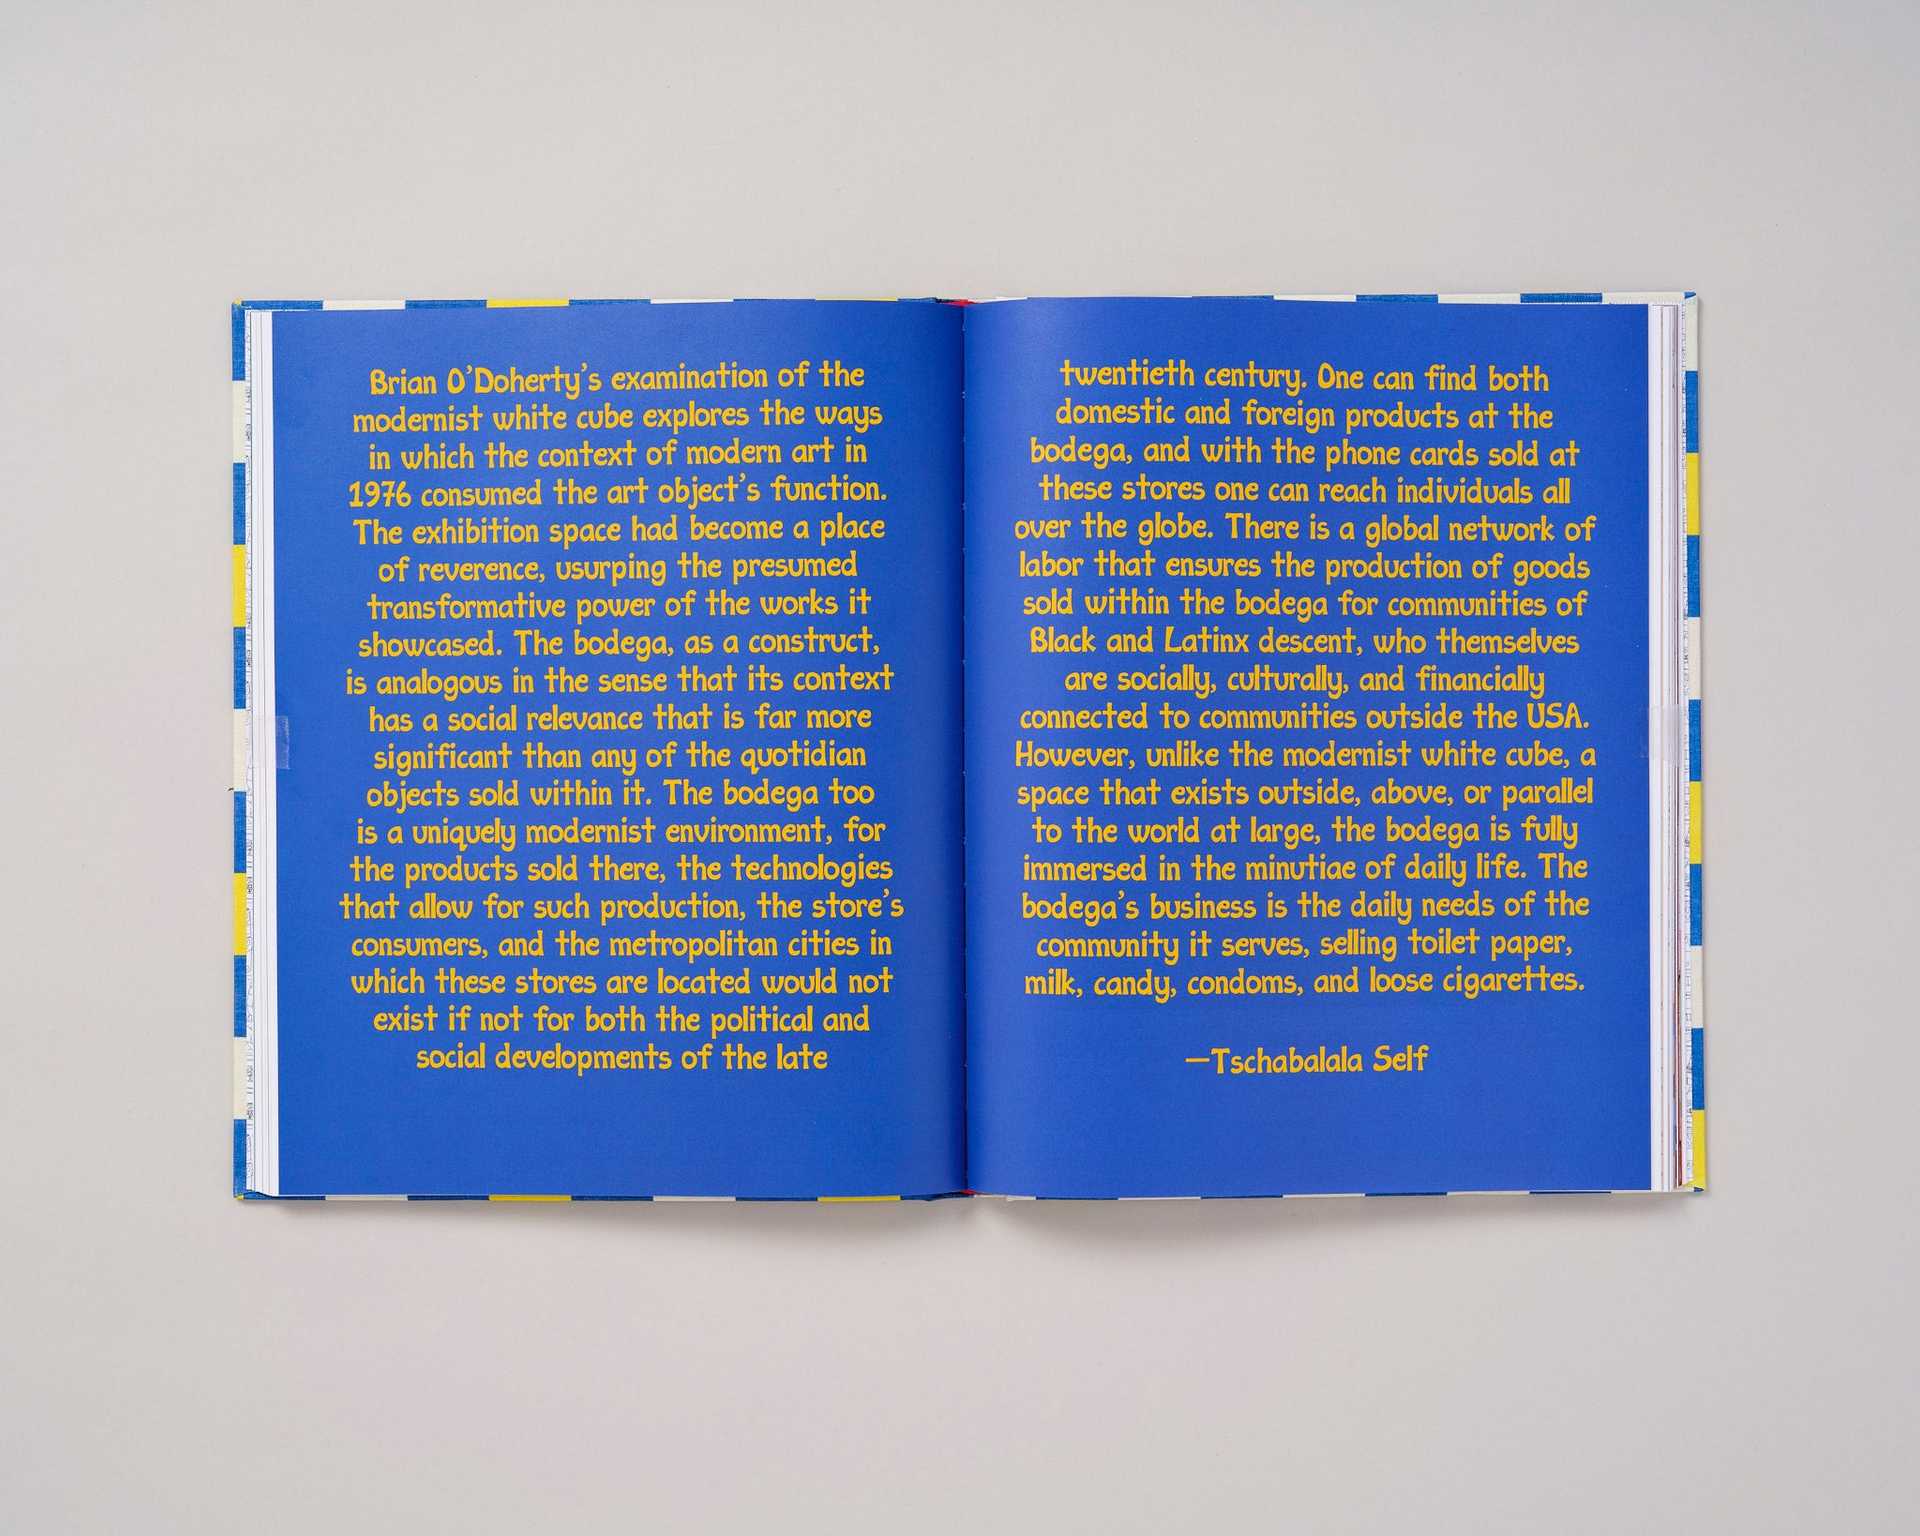 Brian O’Doherty’s examination of the
modernist white cube explores the ways
in which the context of modern art in
1976 consumed the art object’s function.
The exhibition space had become a place
of reverence, usurping the presumed
transformative power of the works it
showcased. The bodega, as a construct,
is analogous in the sense that its context
has a social relevance that is far more
significant than any of the quotidian
objects sold within it. The bodega too
is a uniquely modernist environment, for
the products sold there, the technologies
that allow for such production, the store’s
consumers, and the metropolitan cities in
which these stores are located would not
exist if not for both the political and
social developments of the late
twentieth century. One can find both
domestic and foreign products at the
bodega, and with the phone cards sold at
these stores one can reach individuals all
over the globe. There is a global network of
labor that ensures the production of goods
sold within the bodega for communities of
Black and Latinx descent, who themselves
are socially, culturally, and financially
connected to communities outside the USA.
However, unlike the modernist white cube, a
space that exists outside, above, or parallel
to the world at large, the bodega is fully
immersed in the minutiae of daily life. The
bodega’s business is the daily needs of the
community it serves, selling toilet paper,
milk, candy, condoms, and loose cigarettes.
—Tschabalala Self